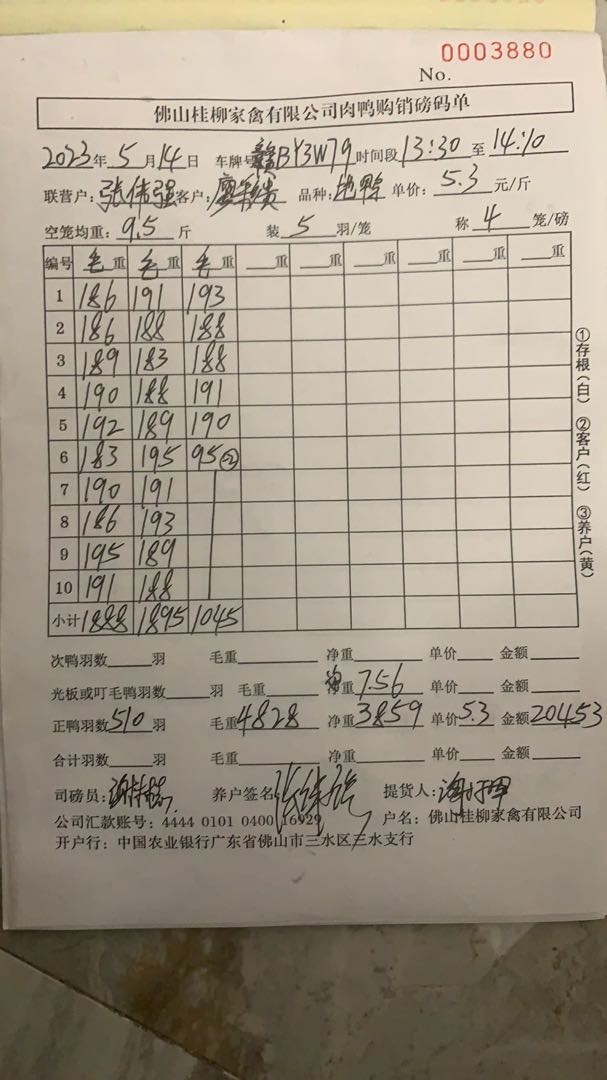 0003880
No.
佛山桂柳家禽有限公司肉鸭购销磅码单
2023年5月14日 车牌号赣BY3W79时间段13:30至14:10
联营户:张伟强客户: 品种: 鸭 单价:5.3元/斤
空笼均重:9.5斤 装5羽/笼 称4笼/磅
编号 毛重 毛重 毛重 重 重 重 重 重
1 186 191 193
2 186 188 188
3 189 183 188
4 190 188 191
5 192 189 190
6 183 195 95②
7 190 191
8 186 193
9 195 189
10 191 188
小计 1888 1895 1045
①存根(白) ②客户(红) ③养户(黄)
次鸭羽数 羽 毛重 净重 单价 金额
光板或叮毛鸭羽数 羽 毛重 均重7.56 单价 金额
正鸭羽数510羽 毛重4828 净重3859 单价5.3 金额20453
合计羽数 羽 毛重 净重 单价 金额
司磅员: 养户签名张伟强 提货人:
公司汇款账号:4444 0101 0400 16929 户名:佛山桂柳家禽有限公司
开户行:中国农业银行广东省佛山市三水区三水支行